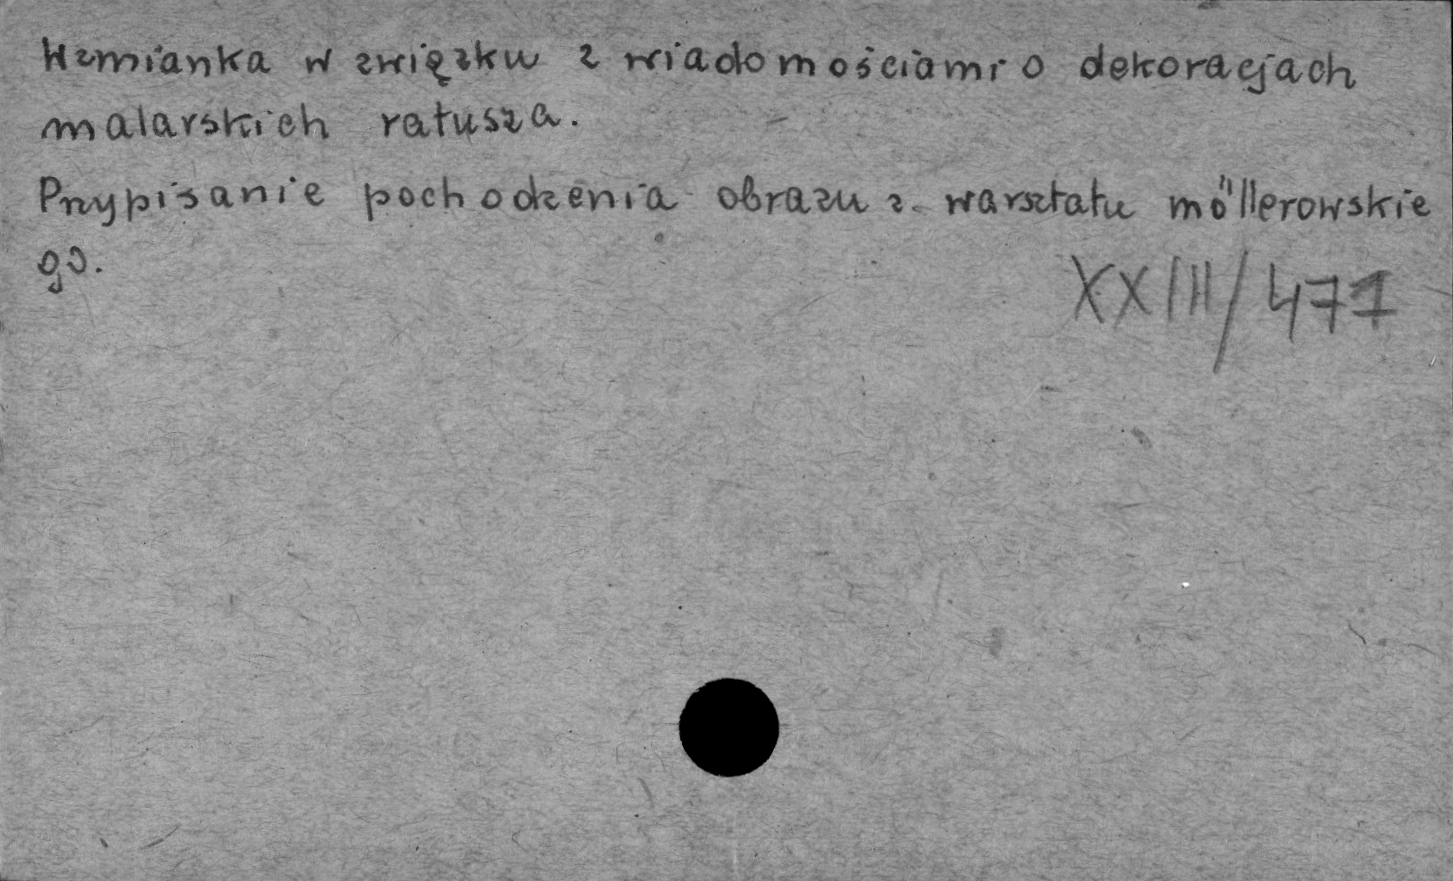 Wzmianka w związku z wiadomościami o dekoracjach
malarskich ratusza.
Przypisanie pochodzenia obrazu z warsztatu möllerowskie
go.
XXIII/471